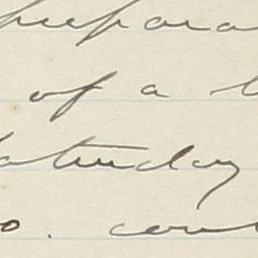 prepara
of a
aturday
o. con